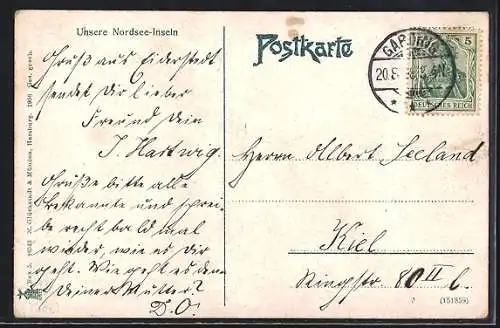 Unsere Nordsee-Inseln
Postkarte
Gruß aus Eiderstedt
sendet Dir lieber
Freund Dein
J. Hartwig.
Grüße bitte alle
Bekannte und schrei-
be recht bald mal
wieder, wie es Dir
geht. Wie geht es denn
Deiner Mutter?
D. O.
GARDING
20.8.
5
DEUTSCHES REICH
Herrn Albert Seeland
Kiel
Ringstr. 80 II l.
(151859)
M. Glückstadt & Münden, Hamburg. 1906 Ges. gesch.